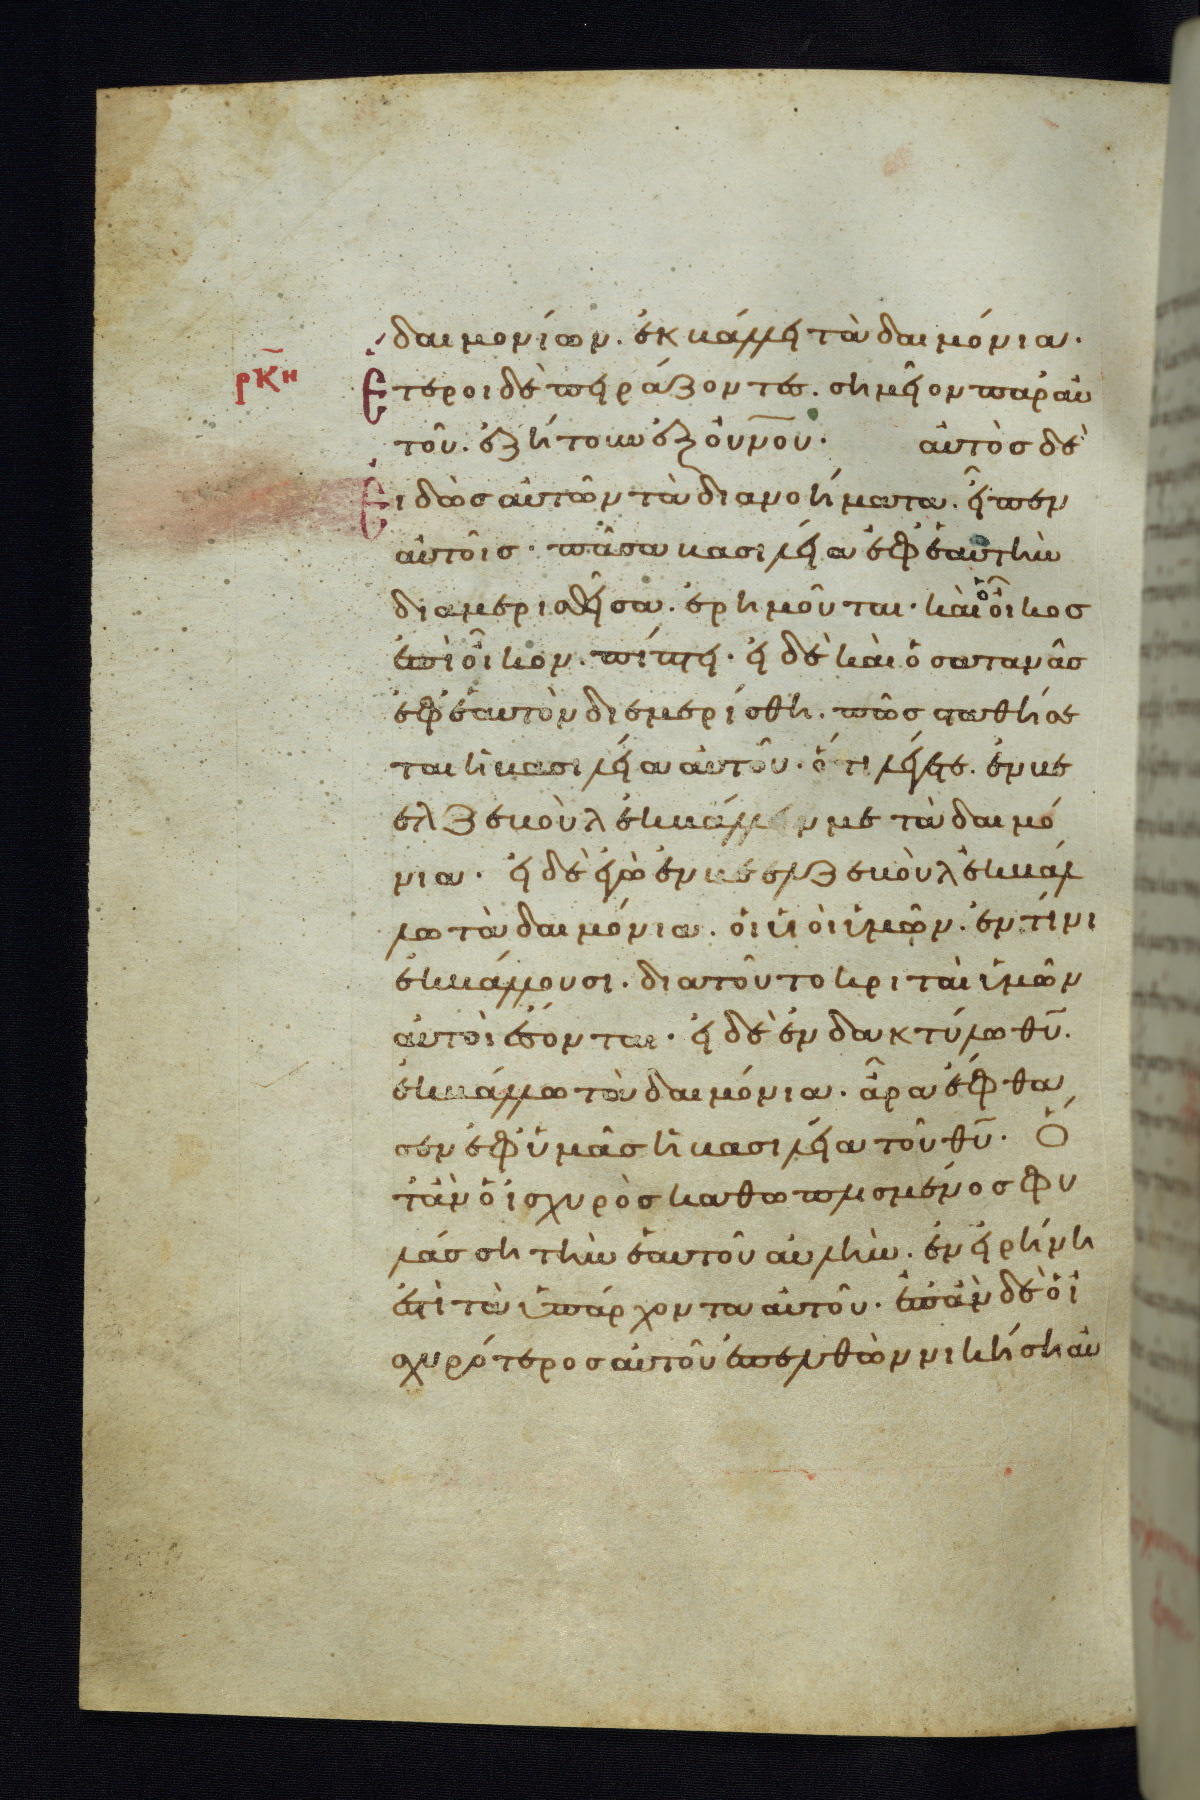 δαιμονίων. ἐκβάλλει τὰ δαιμόνια·
ρκη
Ἕτεροι δὲ πειράζοντες. σημεῖον παρ' αὐ
τοῦ. ἐζήτουν ἐξ οὐνου· αὐτὸς δὲ
Εἰδὼς αὐτῶν τὰ διανοήματα. εἶπεν
αὐτοῖς· πᾶσα βασιλεία ἐφ' ἑαυτὴν
διαμερισθεῖσα. ἐρημοῦται· καὶ ὁ οἶκος
ἐπὶ οἶκον. πίπτει· εἰ δὲ καὶ ὁ σατανᾶς
ἐφ' ἑαυτὸν διεμερίσθη. πῶς σταθήσε
ται ἡ βασιλεία αὐτοῦ· ὅτι λέγετε. ἐν βε
ελζεβοὺλ ἐκβάλλειν με τὰ δαιμό
νια· εἰ δὲ ἐγὼ ἐν βεελζεβοὺλ ἐκβάλ
λω τὰ δαιμόνια. οἱ υἱοὶ ὑμῶν. ἐν τίνι
ἐκβάλλουσι. διατοῦτο κριταὶ ὑμῶν
αὐτοὶ ἔσονται· εἰ δὲ ἐν δακτύλω θυ.
ἐκβάλλω τὰ δαιμόνια. ἆρα ἔφθα
σεν ἐφ' ὑμᾶς ἡ βασιλεία τοῦ θυ· Ὅ
τὰν ὁ ἰσχυρὸς καθωπλισμένος φυ
λάσση τὴν ἑαυτοῦ αὐλὴν. ἐν εἰρήνη
ἐστὶ τὰ ὑπάρχοντα αὐτοῦ. ἐπὰν δὲ ὁ ἰ
σχυρότερος αὐτοῦ ἐπελθὼν νικήση αὐ